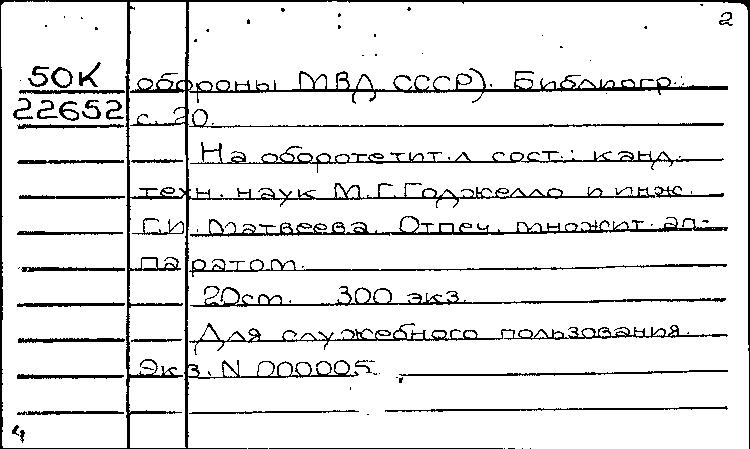 2
50К обороны МВД СССР). Библиогр.:
22652 с. 20.
На оборотетит.л сост.: канд.
техн. наук М.Г.Годжелло и инж.
Г.И. Матвеева. Отпеч. множит. ап-
паратом.
20cm. 300 экз.
Для служебного пользования.
Экз. N 000005
4